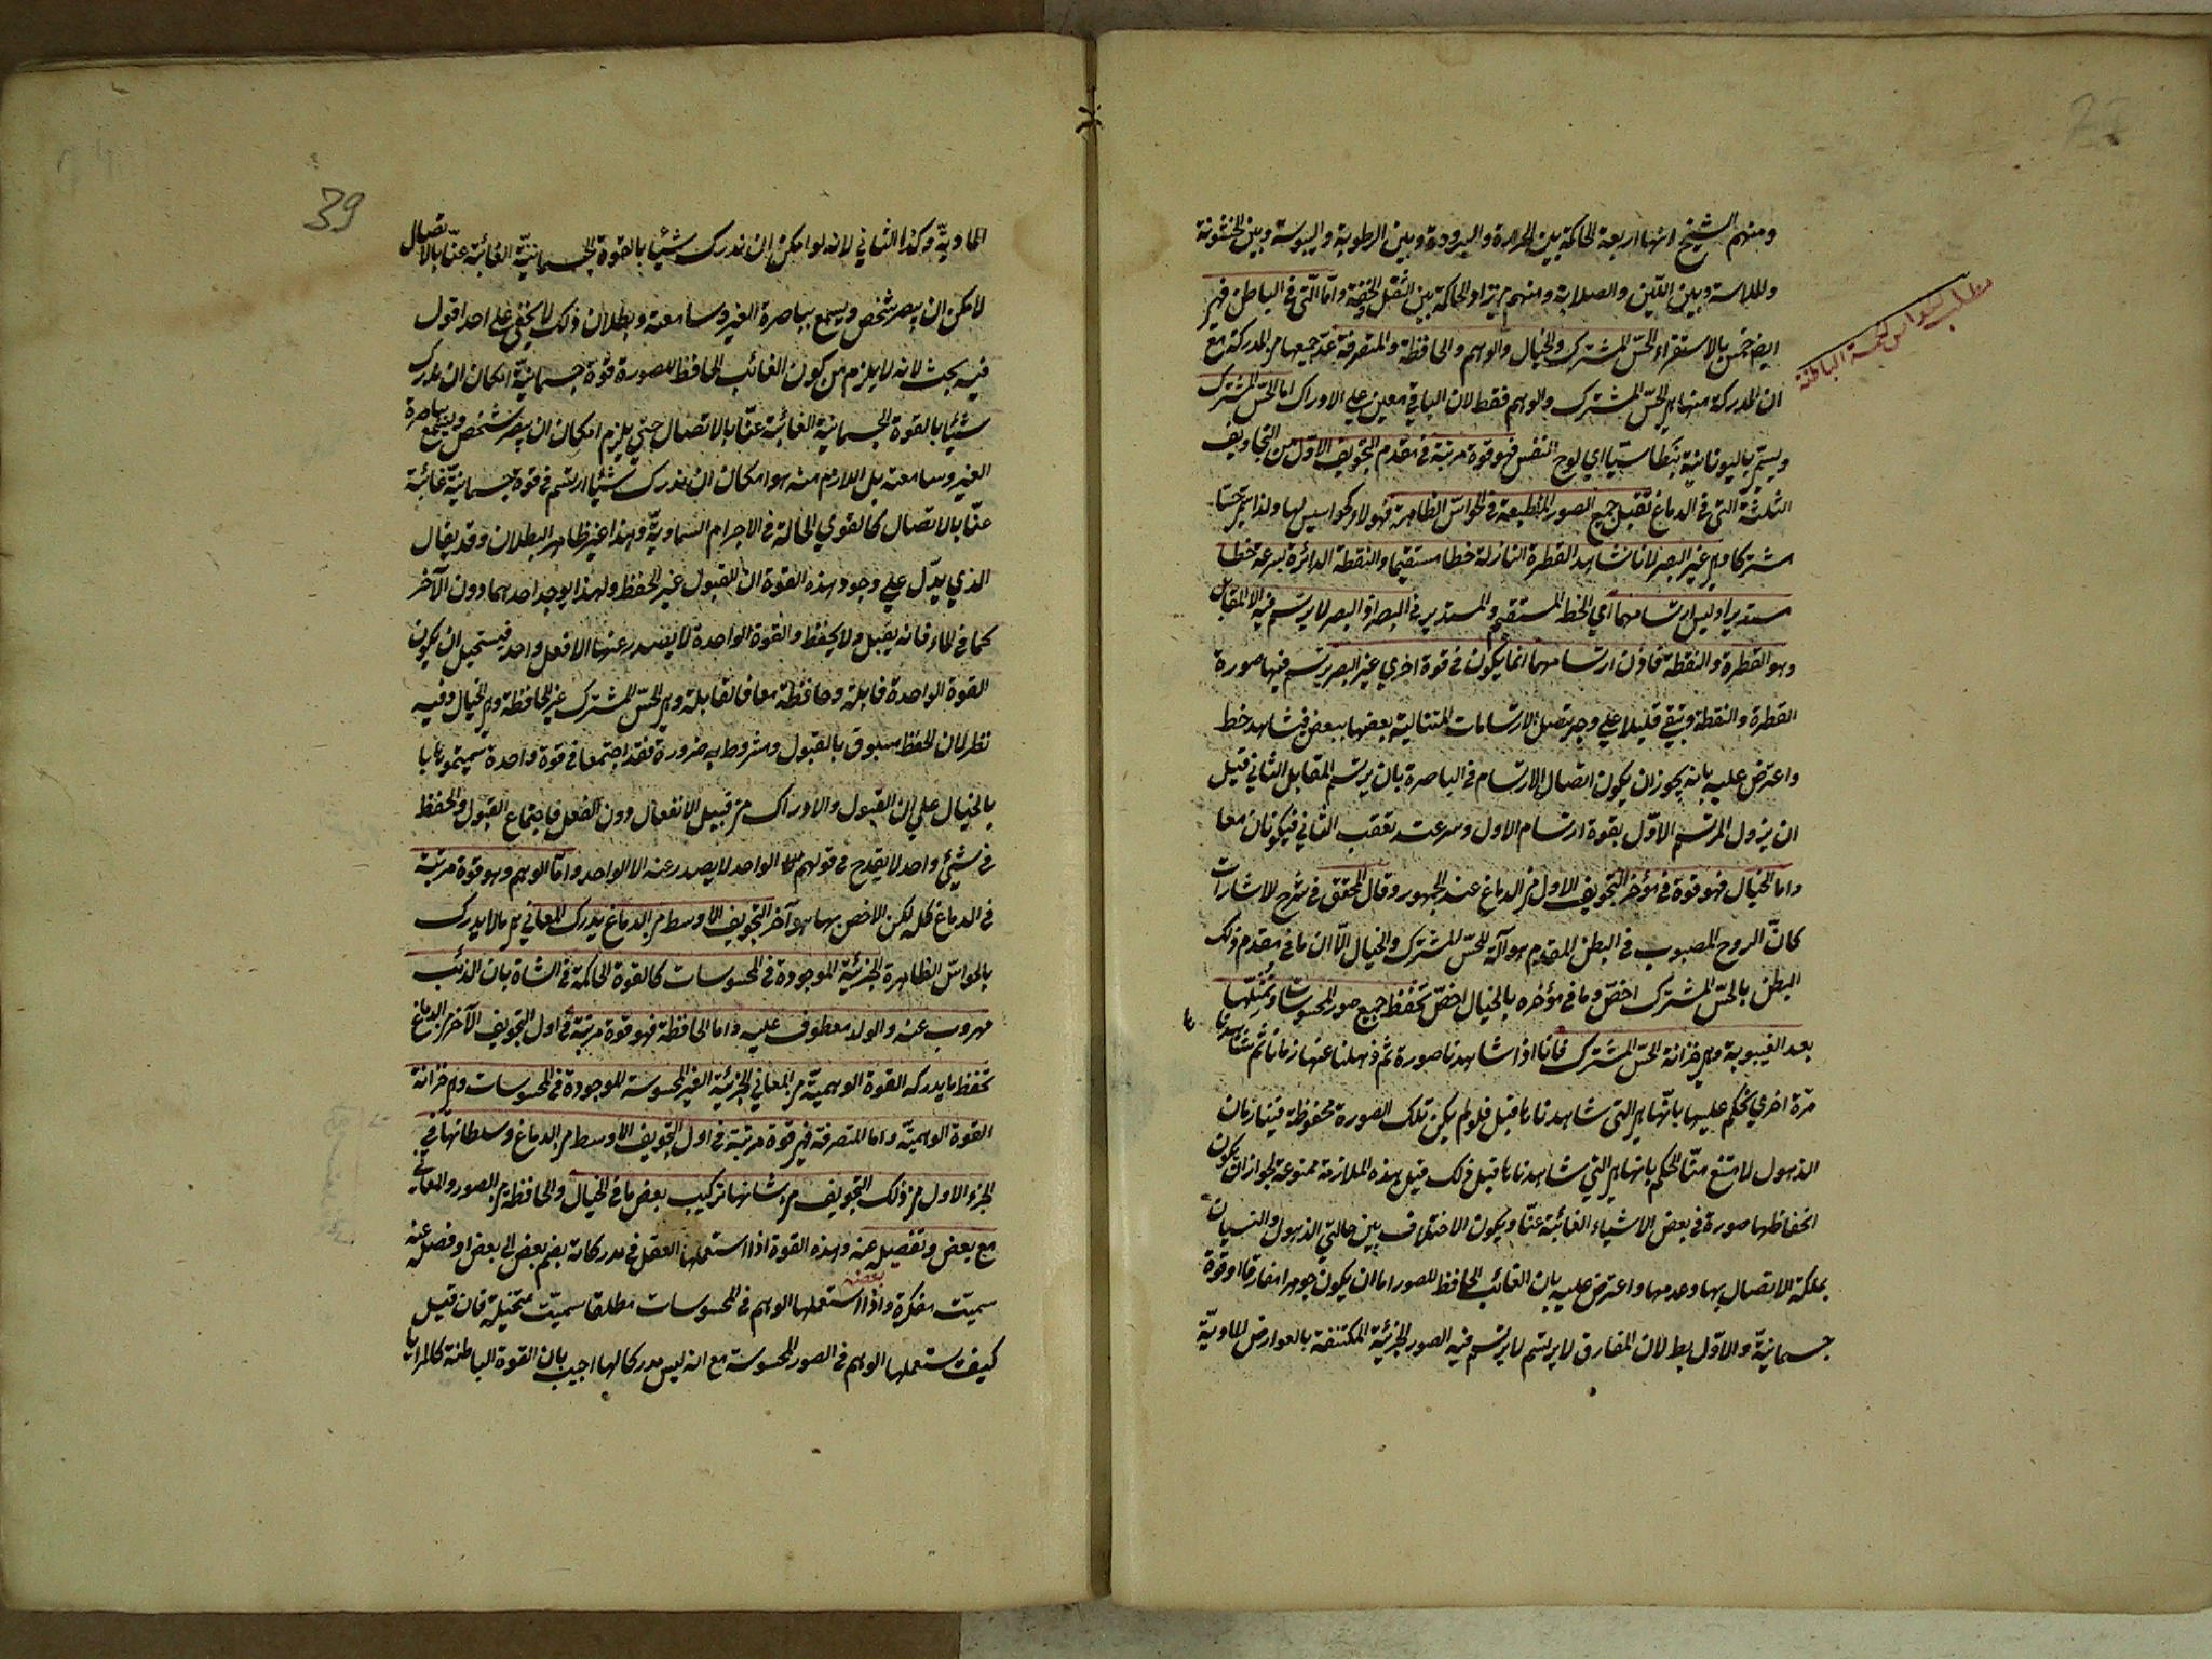 ومنهم الشيخ انها اربعة الحاكمة بين الحرارة والبرودة وبين الرطوبة واليبوسة وبين الخشونة
والملاسة وبين اللين والصلابة ومنهم من زاد الحاكمة بين الثقل والخفة واما التى فى الباطن فهى
ايضا خمس بالاستقراء الحس المشترك والخيال والوهم والحافظة والمتصرفة عد جميعها من المدركة مع
ان المدركة منها هى الحس المشترك والوهم فقط لان الباقي معين على الادراك اما الحس المشترك
ويسمى باليونانية بنطاسيا اى لوح النفس فهو قوة مرتبة فى مقدم التجويف الاول من التجاويف
الثلثة التى فى الدماغ تقبل جميع الصور المنطبعة فى الحواس الظاهرة فهؤلاء كجواسيس لها ولذا سمى حسا
مشتركا وهى غير البصر لانا نشاهد القطرة النازلة خطا مستقيما والنقطة الدائرة بسرعة خطا
مستديرا وليس ارتسامهما اى الخط المستقيم والمستدير فى البصر اذ البصر لا يرتسم فيه الا المقابل
وهو القطرة والنقطة فاذن ارتسامهما انما يكون فى قوة اخرى غير البصر يرتسم فيها صورة
القطرة والنقطة وتبقى قليلا على وجه يتصل الارتسامات المتتالية بعضها ببعض فيشاهد خط
واعترض عليه بانه يجوز ان يكون اتصال الارتسام فى الباصرة بان يرتسم المقابل الثانى قبل
ان يزول المرتسم الاول بقوة ارتسام الاول وسرعة تعقب الثانى فيكونان معا
واما الخيال فهو قوة فى مؤخر التجويف الاول من الدماغ عند الجمهور وقال المحقق فى شرح الاشارات
كان الروح المصبوب فى البطن المقدم هو آلة للحس المشترك والخيال الا ان ما فى مقدم ذلك
البطن بالحس المشترك اخص وما فى مؤخره بالخيال اخص تحفظ جميع صور المحسوسات وتمثلها
بعد الغيبوبة وهى خزانة الحس المشترك فانا اذا شاهدنا صورة ثم ذهلنا عنها زمانا ثم نشاهدها
مرة اخرى نحكم عليها بانها هى التى شاهدناها قبل فلو لم يكن تلك الصورة محفوظة فينا زمان
الذهول لامتنع منا الحكم بانها هى التى شاهدناها قبل ذلك قيل هذه الملازمة ممنوعة لجواز ان يكون
انحفاظها صورة فى بعض الاشياء الغائبة عنا ويكون الاختلاف بين حالتي الذهول والنسيان
بملكة الاتصال بها وعدمها واعترض عليه بان الغائب الحافظ للصور اما ان يكون جوهرا مفارقا او قوة
جسمانية والاول بط لان المفارق لا يرتسم لا يرتسم فيه الصور الجزئية المكتنفة بالعوارض المادية
مطلب الحواس الخمسة الباطنة
39
المادية وكذا الثاني لانه لو امكن ان ندرك شيئا بالقوة الجسمانية الغائبة عنا بالاتصال
لامكن ان يبصر شخص ويسمع بباصرة الغير وسامعته وبطلان ذلك لا يخفى على احد اقول
فيه بحث لانه لا يلزم من كون الغائب الحافظ للصورة قوة جسمانية امكان ان ندرك
شيئا بالقوة الجسمانية الغائبة عنا بالاتصال حتى يلزم امكان ان يبصر شخص ويسمع بباصرة
الغير وسامعته بل اللازم منه هو امكان ان ندرك شيئا ارتسم فى قوة جسمانية غائبة
عنا بالاتصال كالقوى الحالة فى الاجرام السماوية وهذا غير ظاهر البطلان وقد يقال
الذى يدل على وجود هذه القوة ان القبول غير الحفظ ولهذا يوجد احدهما دون الآخر
كما فى الماء فانه يقبل ولا يحفظ والقوة الواحدة لا يصدر عنها الا فعل واحد فيستحيل ان يكون
القوة الواحدة قابلة وحافظة معا فالقابلة وهى الحس المشترك غير الحافظة وهى الخيال وفيه
نظر لان الحفظ مسبوق بالقبول ومشروط به ضرورة فقد اجتمعا فى قوة واحدة سميتموها با
بالخيال على ان القبول والادراك من قبيل الانفعال دون الفعل فاجتماع القبول والحفظ
فى شيئ واحد لا يقدح فى قولهم الواحد لا يصدر عنه الا الواحد واما الوهم وهو قوة مرتبة
فى الدماغ كله لكن الاخص بها هو آخر التجويف الاوسط من الدماغ يدرك المعاني هى ما لا يدرك
بالحواس الظاهرة الجزئية الموجودة فى المحسوسات كالقوة الحاكمة فى الشاة بان الذئب
مهروب عنه والولد معطوف عليه واما الحافظة فهو قوة مرتبة فى اول التجويف الآخر من الدماغ
تحفظ ما يدركه القوة الوهمية من المعاني الجزئية الغير المحسوسة الموجودة فى المحسوسات وهى خزانة
القوة الوهمية واما المتصرفة فهى قوة مرتبة فى اول التجويف الاوسط من الدماغ وسلطانها فى
الجزء الاول من ذلك التجويف من شانها تركيب بعض ما فى الخيال والحافظة من الصور والمعانى
مع بعض وتفصيله عنه وهذه القوة اذا استعملها العقل فى مدركاته بضم بعض الى بعض او فصل عنه
بعضه
سميت مفكرة واذا استعملها الوهم فى المحسوسات مطلقا سميت متخيلة فان قيل
كيف يستعملها الوهم فى الصور المحسوسة مع انه ليس مدركا لها اجيب بان القوة الباطنة كالمرايا